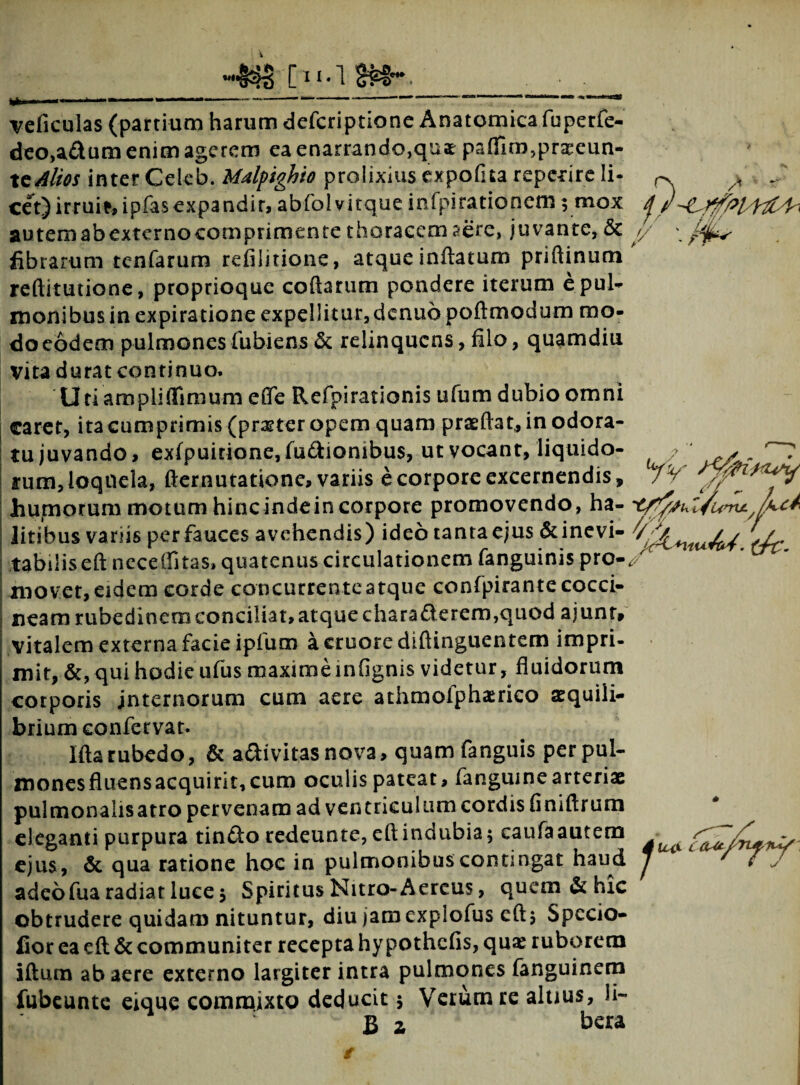 [11.]
veſiculas (partium harum deſcriptione Anatomica ſuperſe-
deo,actum enim agerem ea enarrando,quæ paſſim,præeun-
te Alios inter Celeb. Malpighio prolixius expoſita reperire li-
cet) irruit, ipſas expandit, abſolvitque inſpirationem ; mox
autem ab externo comprimente thoracem aëre, juvante, &
fibrarum tenſarum reſilitione, atque inſtatum priſtinum
reſtitutione, proprioque coſtarum pondere iterum è pul-
monibus in expiratione expellitur, denuò poſtmodum mo-
do eôdem pulmones ſubiens & relinquens, filo, quamdiu
vita durat continuo.
Uti ampliſſimum eſſe Reſpirationis uſum dubio omni
caret, ita cumprimis (præter opem quam præſtat, in odora-
tu juvando, exſpuitione, ſuctionibus, ut vocant, liquido-
rum, loquela, ſternutatione, variis è corpore excernendis,
humorum motum hinc inde in corpore promovendo, ha-
litibus variis per fauces avehendis) ideò tanta ejus & inevi-
tabilis eſt neceſſitas, quatenus circulationem ſanguinis pro-
movet, eidem corde concurrente atque conſpirante cocci-
neam rubedinem conciliat, atque characterem,quod ajunt,
vitalem externa facie ipſum à cruore diſtinguentem impri-
mit, &, qui hodie uſus maximè inſignis videtur, fluidorum
corporis internorum cum aere athmoſphærico æquili-
brium conſervat.
Iſta rubedo, & activitas nova, quam ſanguis per pul-
mones fluens acquirit, cum oculis pateat, ſanguine arteriæ
pulmonalis atro pervenam ad ventriculum cordis ſiniſtrum
eleganti purpura tincto redeunte, eſt indubia ; cauſa autem
ejus, & qua ratione hoc in pulmonibus contingat haud
adeò ſua radiat luce ; Spiritus Nitro-Aereus, quem & hîc
obtrudere quidam nituntur, diu jam exploſus eſt ; Specio-
ſior ea eſt & communiter recepta hypotheſis, quæ ruborem
iſtum ab aere externo largiter intra pulmones ſanguinem
ſubeunte eique commixto deducit ; Verùm re altius, li-
B 2 bera